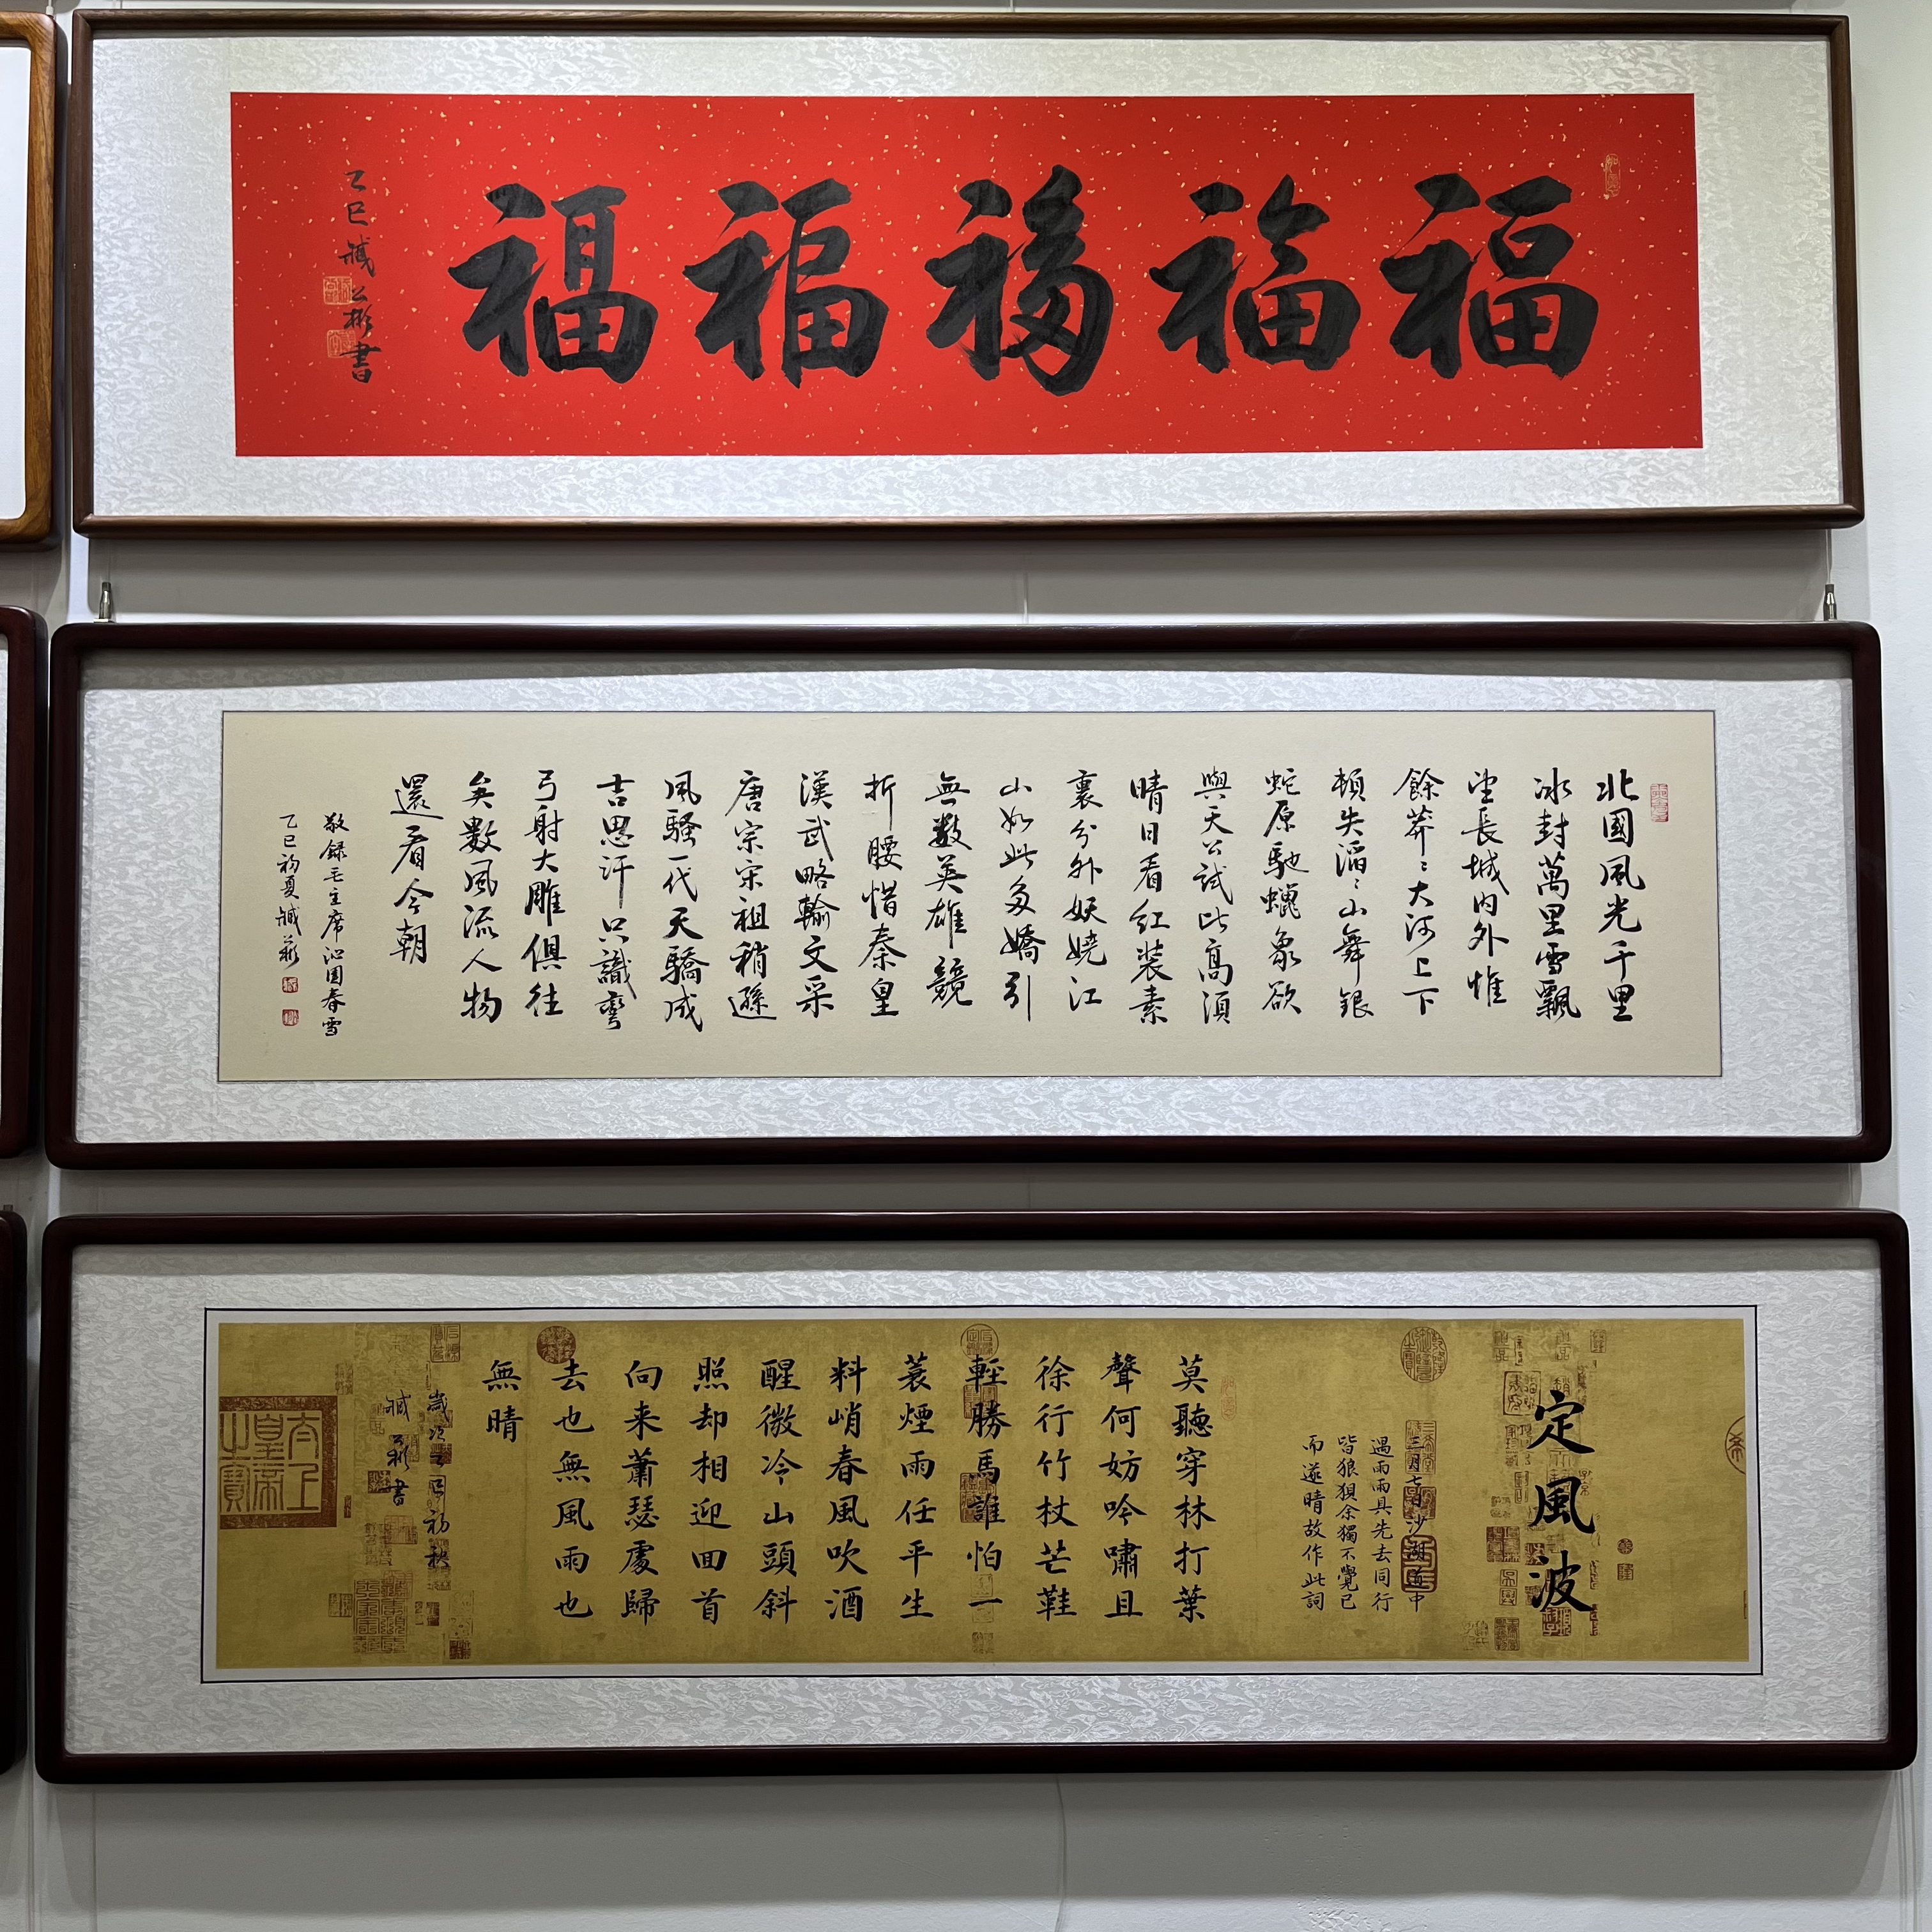 福福福福福
乙巳臧公彬書
北國風光千里
冰封萬里雪飄
望長城内外惟
餘莽〻大河上下
頓失滔〻山舞銀
蛇原馳蠟象欲
與天公試比高須
晴日看紅裝素
裹分外妖嬈江
山如此多嬌引
無數英雄競
折腰惜秦皇
漢武略輸文采
唐宗宋祖稍遜
風騷一代天驕成
吉思汗只識彎
弓射大雕俱往
矣數風流人物
還看今朝
敬録毛主席沁園春雪
乙巳初夏臧
定風波
三月七日沙湖道中
遇雨雨具先去同行
皆狼狽余獨不覺已
而遂晴故作此詞
莫聽穿林打葉
聲何妨吟嘯且
徐行竹杖芒鞋
輕勝馬誰怕一
蓑煙雨任平生
料峭春風吹酒
醒微冷山頭斜
照却相迎回首
向来蕭瑟處歸
去也無風雨也
無晴
歲次乙巳初秋
臧公彬書
太上
皇帝
之寶